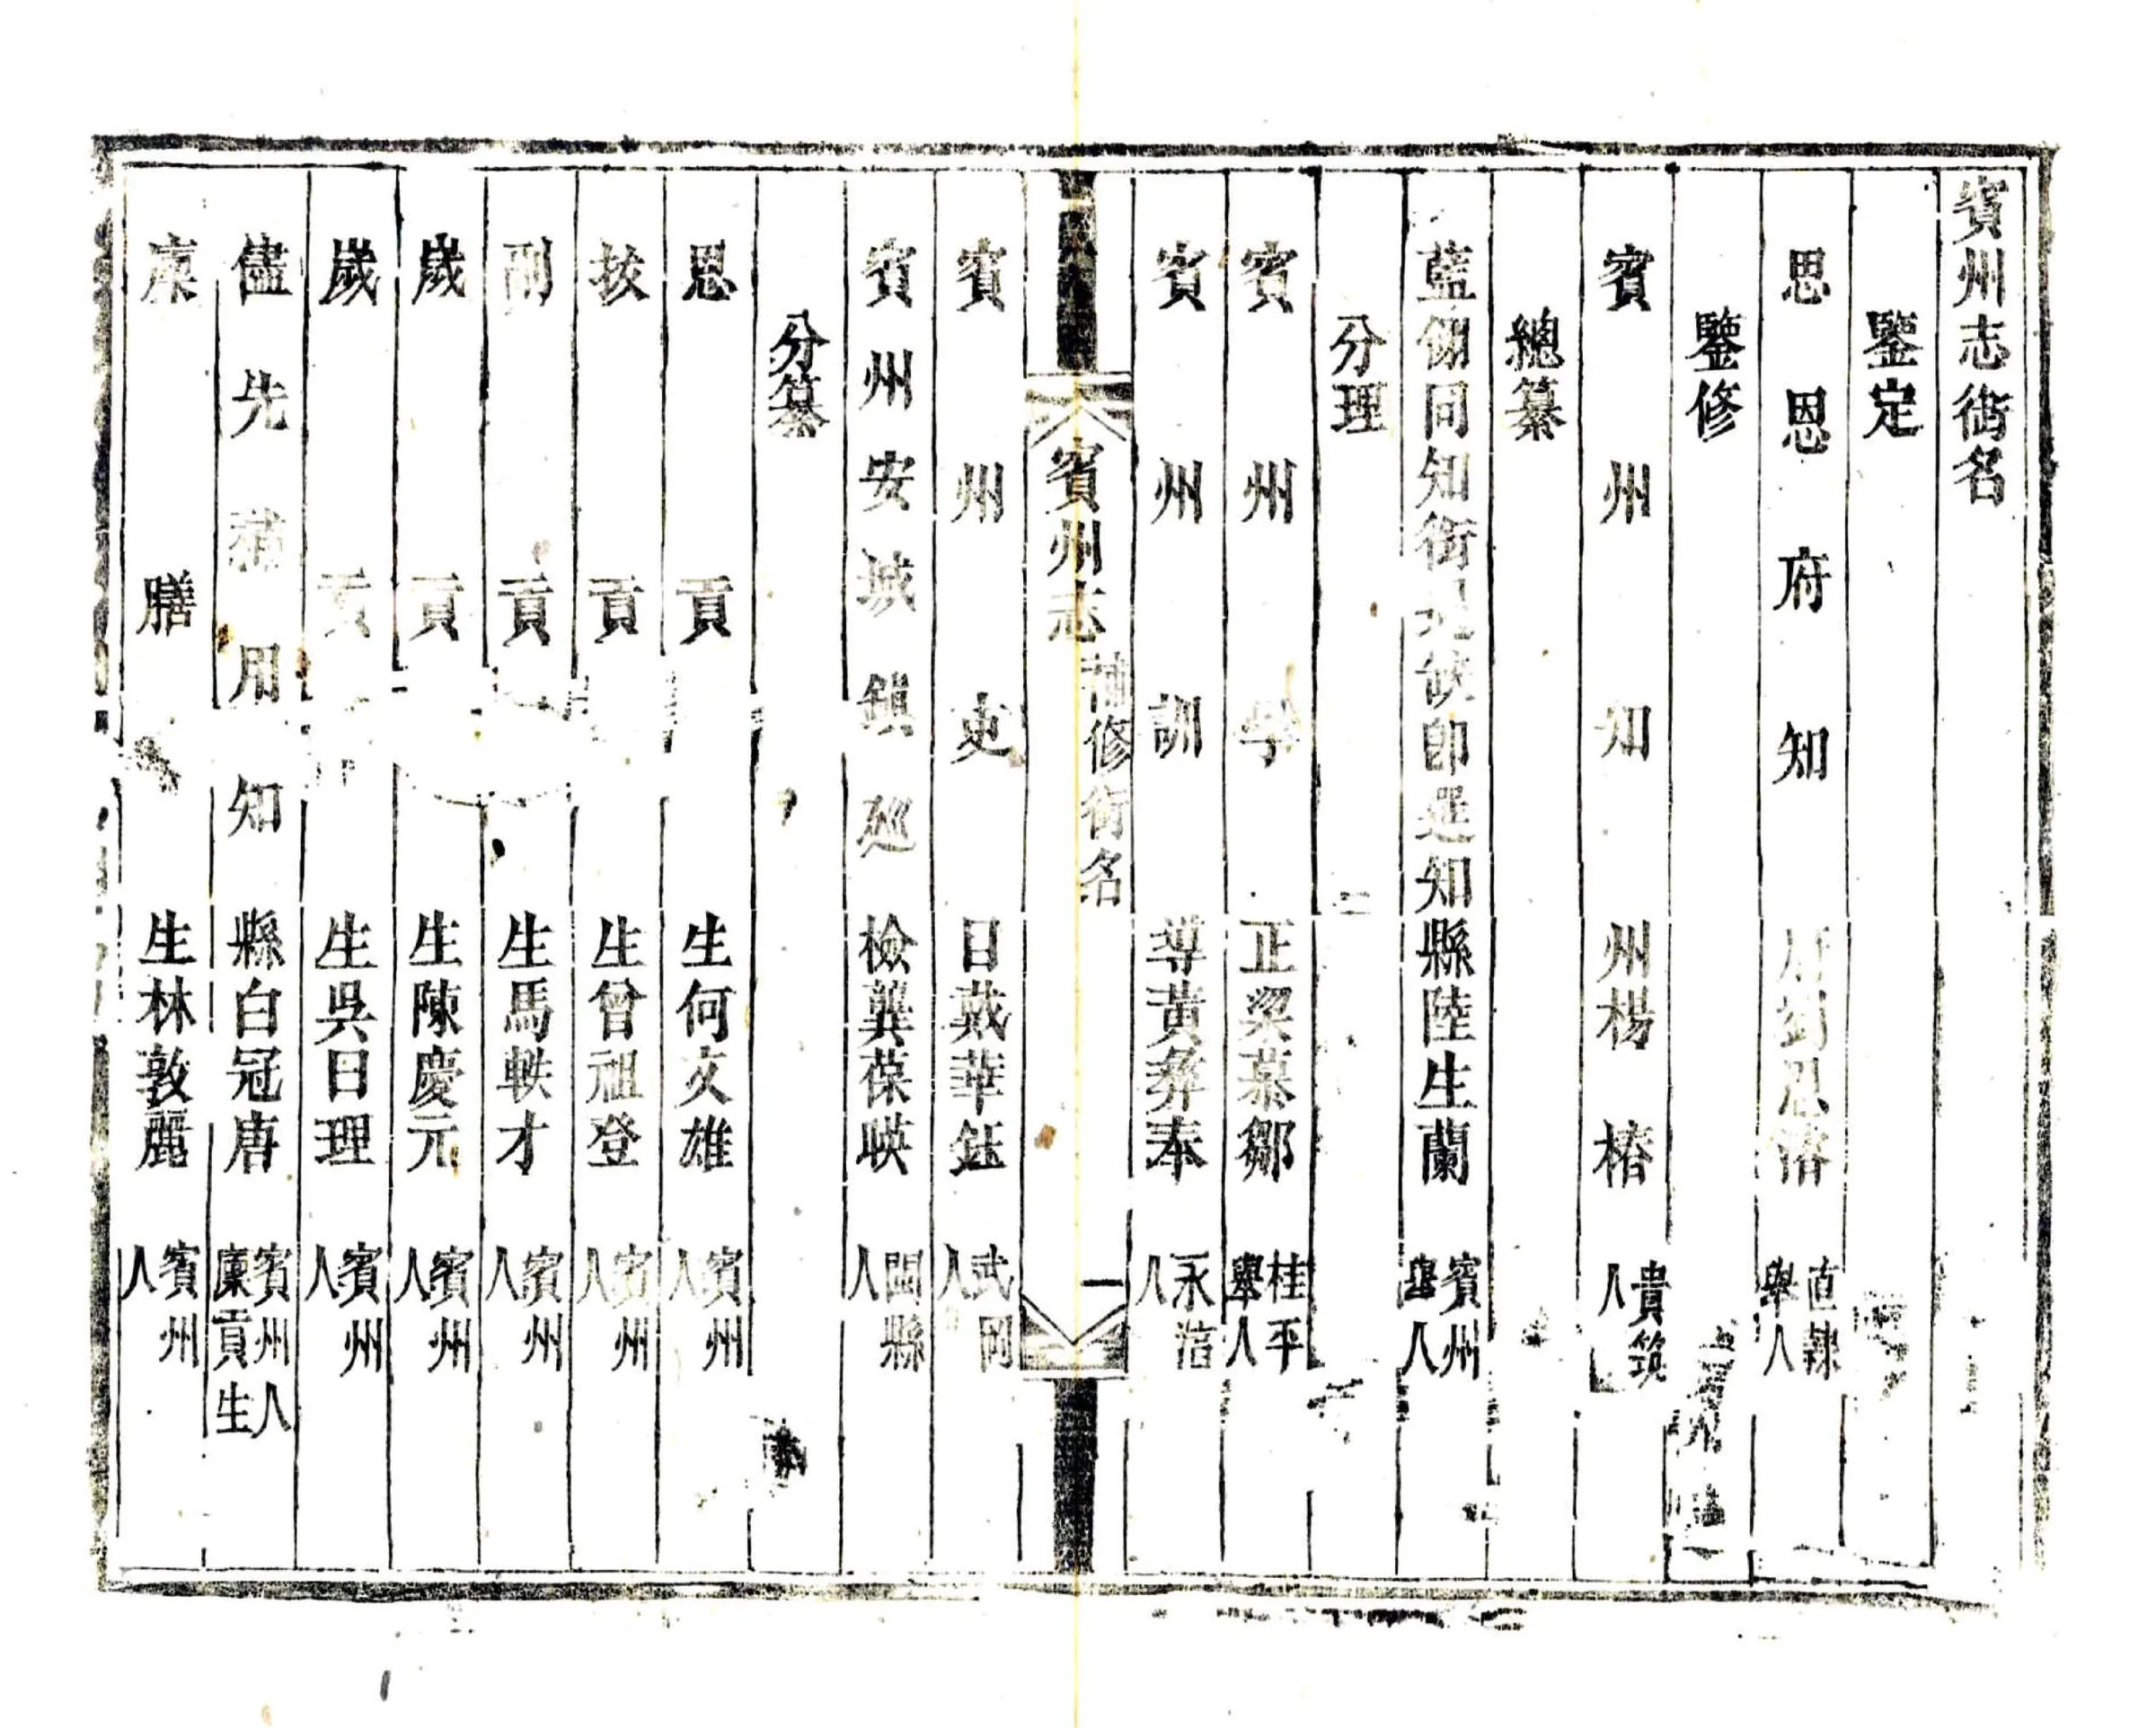 賓州志銜名
鑒定
思恩府知府劉思濬 直隸舉人
鑒修
賓州知州楊椿 貴筑人
總纂
藍翎同知銜 缺即選知縣陸生蘭 賓州舉人
分理
賓州學正梁慕鄒 桂平舉人
賓州訓導黃彝奉 永淳人
賓州志 補修銜名 一
賓州吏目戴華鈺 武岡人
賓州安城鎮巡檢龔葆暎 閩縣人
分纂
恩貢生何文雄 賓州人
拔貢生曾祖登 賓州人
副貢生馬軼才 賓州人
歲貢生陳慶元 賓州人
歲貢生吳日理 賓州人
儘先補用知縣白冠唐 賓州人廩貢生
廩膳生林敦麗 賓州人